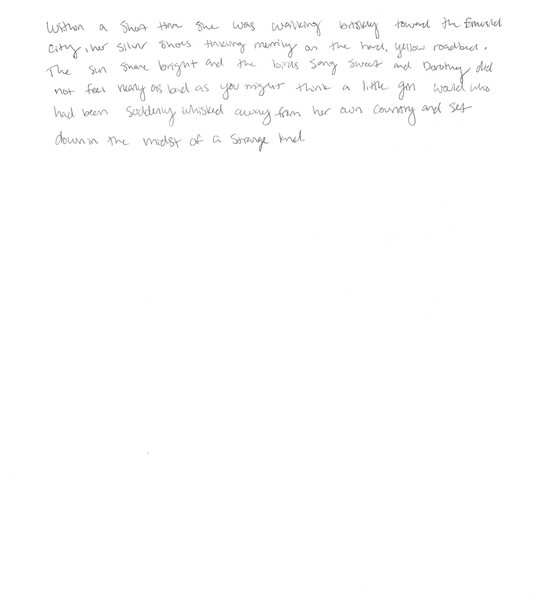 Within a short time she was walking briskly toward the Emerald
City, her silver shoes tinking merrily on the hard, yellow roadbed.
The sun shone bright and the birds sang sweet and Dorothy did
not feel nearly as bad as you might think a little girl would who
had been suddenly whisked away from her own country and set
down in the midst of a strange land.